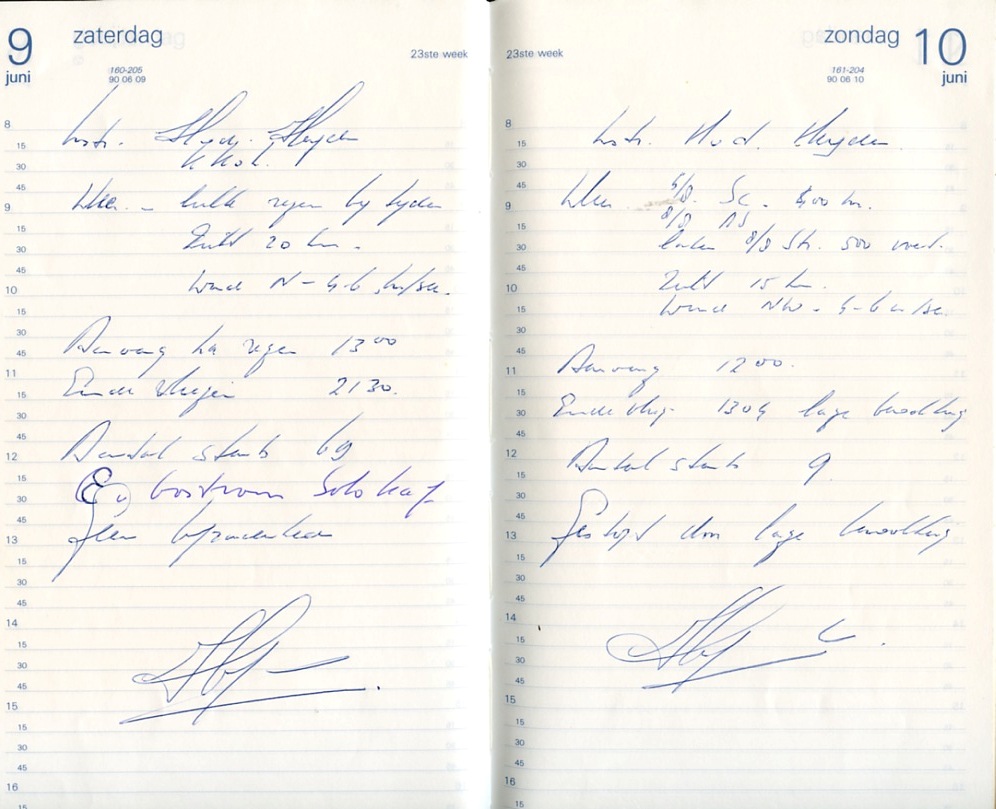 9 zaterdag
juni
160-205
90 06 09
23ste week
Instr.
Weer. – bulle regen by tyden
Zicht 20 km.
wind N – 4-6 m/sec.
Aanvang na regen 13 00
Einde vliegen 21 30.
Aantal starts 69
Solo
Geen byzonderheden
8
15
30
45
9
15
30
45
10
15
30
45
11
15
30
45
12
15
30
45
13
15
30
45
14
15
30
45
15
15
30
45
16
15
23ste week
zondag 10
juni
161-204
90 06 10
Instr.
Weer. 5/8 Sc. 500 m.
8/8 AS
later 8/8 St. 500 voet.
Zicht 15 km.
wind NW. 4-6 m/sec.
Aanvang 12 00.
Einde vlieg. 13 04 lage bewolking
Aantal starts 9.
Gestopt door lage bewolking
8
15
30
45
9
15
30
45
10
15
30
45
11
15
30
45
12
15
30
45
13
15
30
45
14
15
30
45
15
15
30
45
16
15